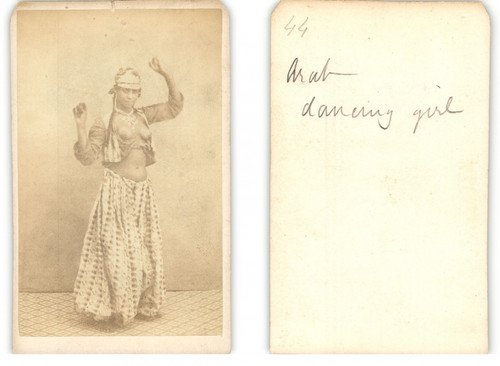 44
Arab
dancing girl